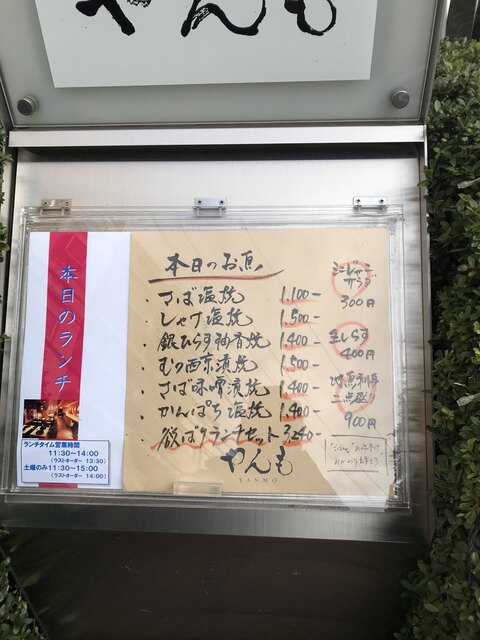 やんも
本日のランチ
ランチタイム営業時間
11:30〜14:00
(ラストオーダー 13:30)
土曜のみ11:30〜15:00
(ラストオーダー 14:00)
本日のお魚
・さば塩焼 1.100-
・しゃけ塩焼 1.500-
・銀ひらす柚香焼 1.400-
・むつ西京漬焼 1.500-
・さば味噌漬焼 1.400-
・かんぱち塩焼 1.400-
・欲ばりランチセット 3.240-
サラダ
300円
生しらす
400円
二点盛り
900円
やんも
YANMO